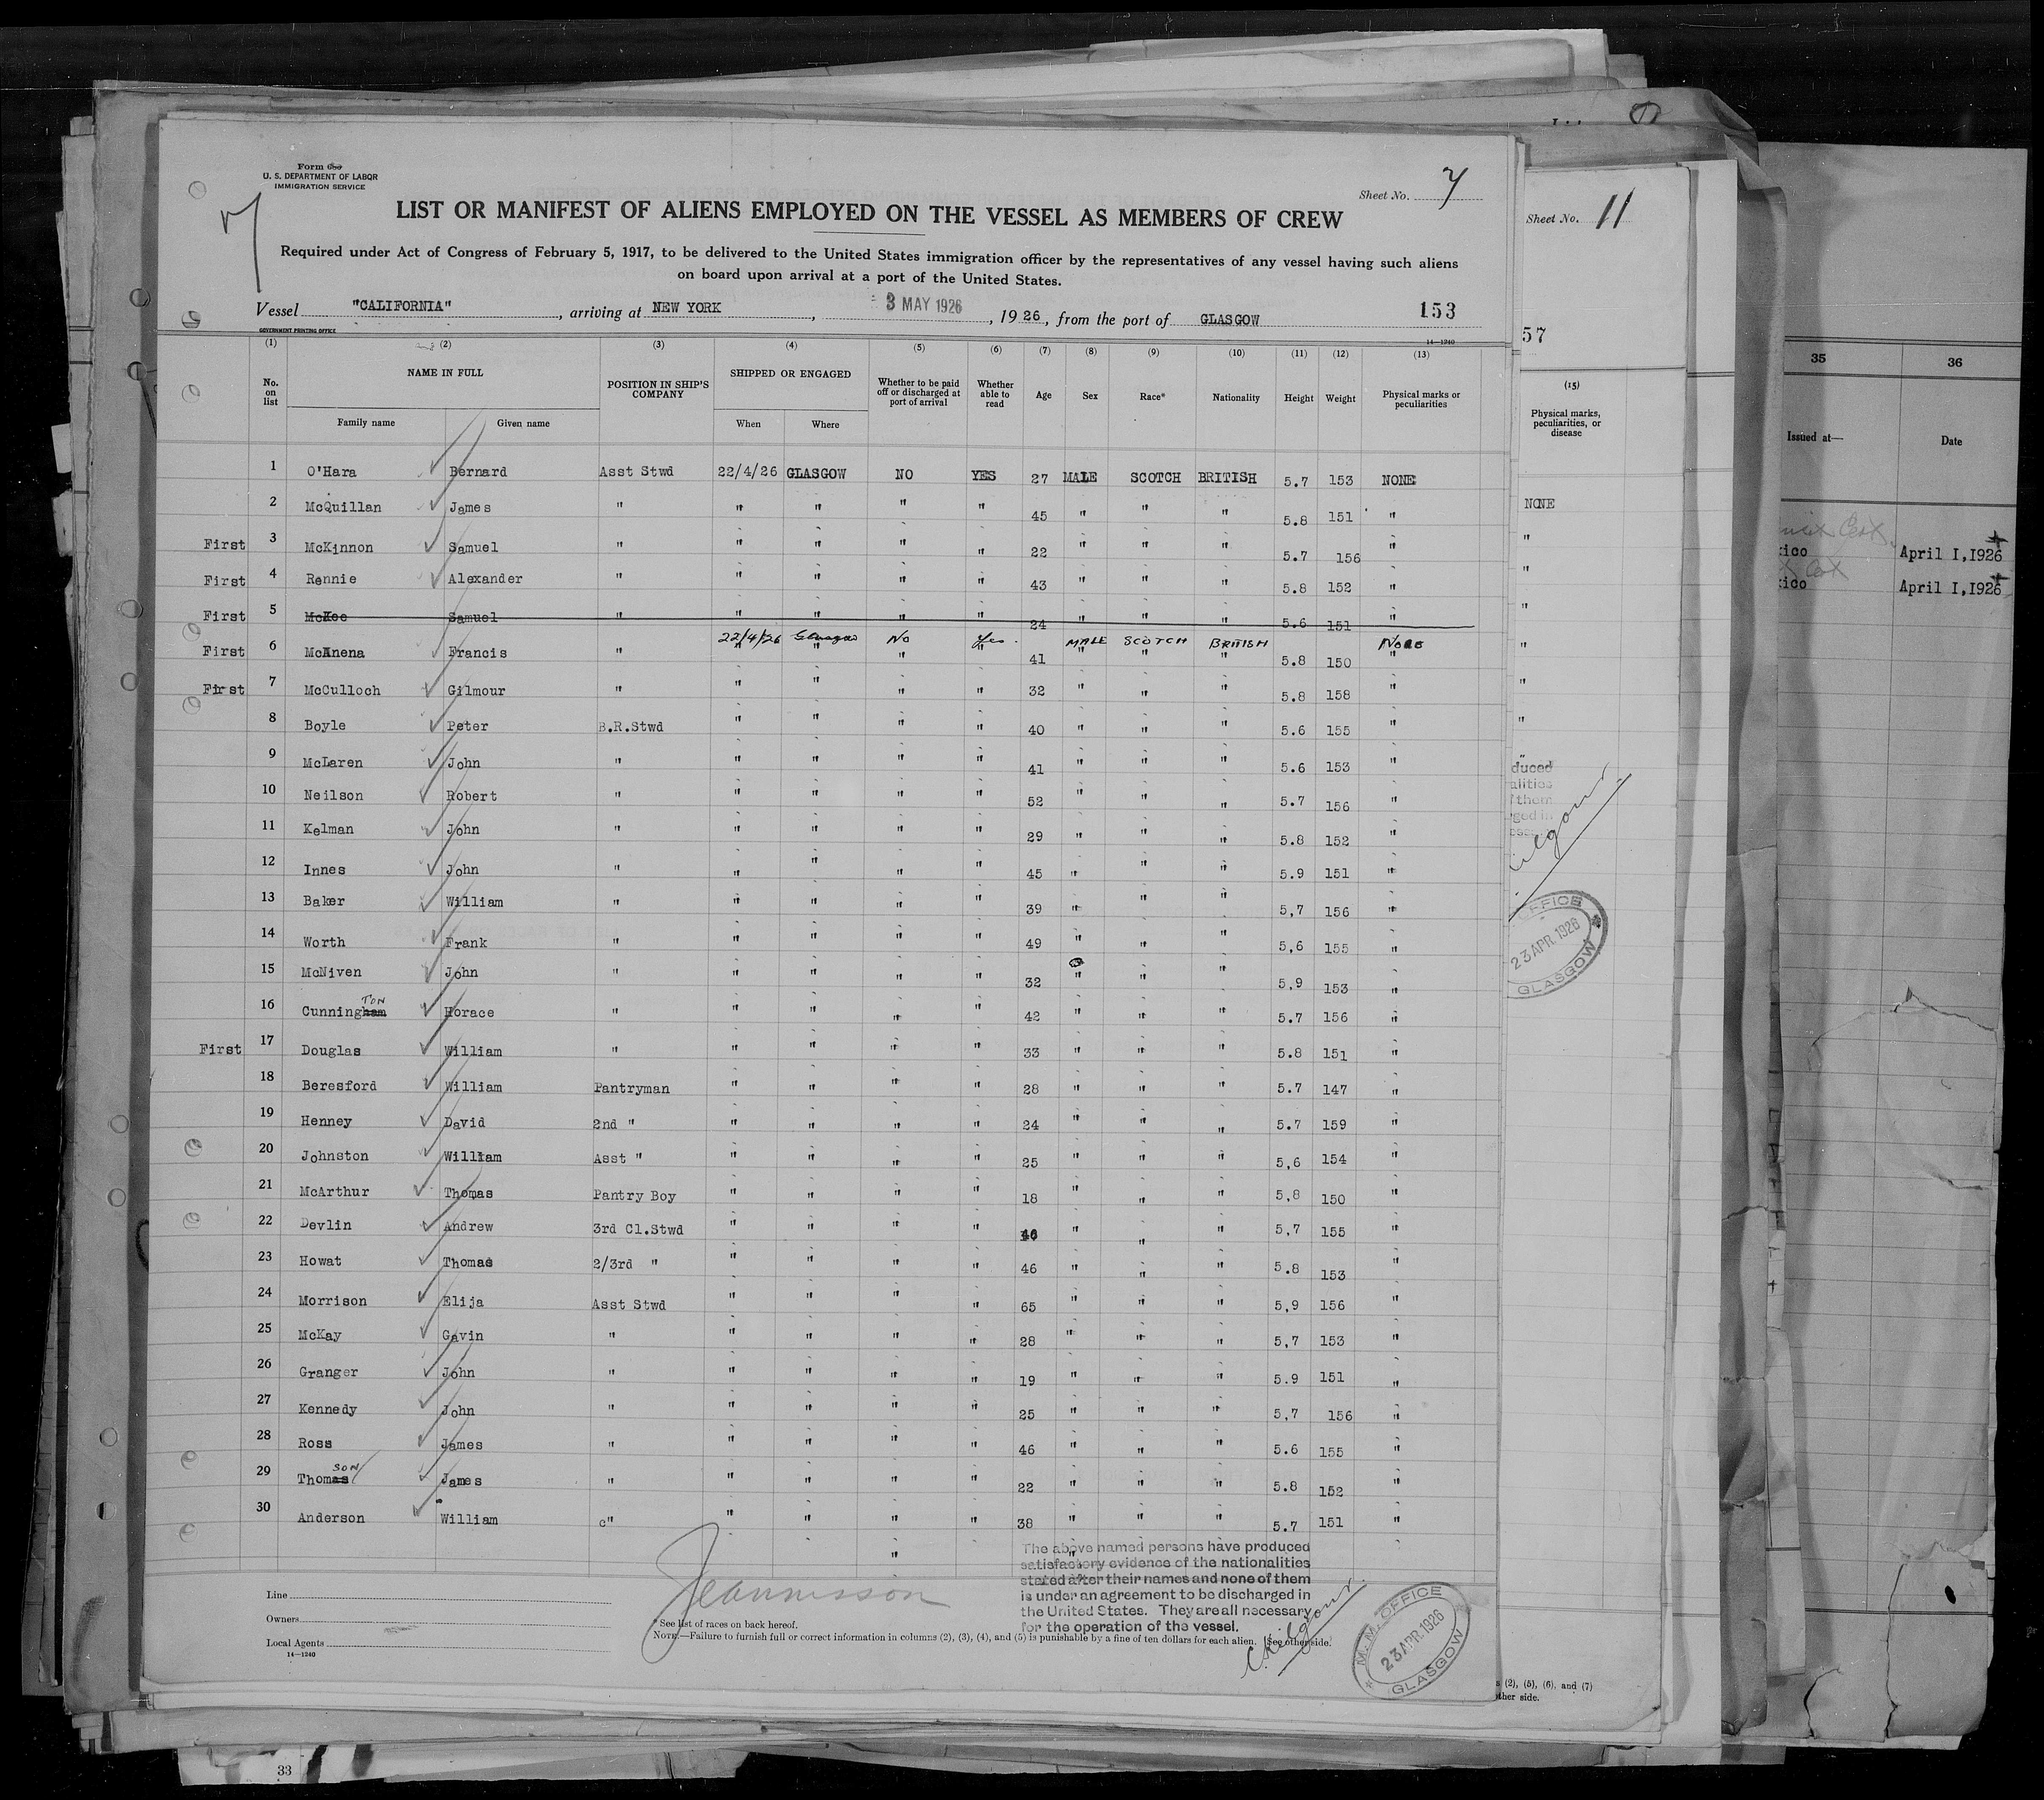 Form 680
U. S. DEPARTMENT OF LABOR
IMMIGRATION SERVICE
7
Sheet No. 7
LIST OR MANIFEST OF ALIENS EMPLOYED ON THE VESSEL AS MEMBERS OF CREW
Required under Act of Congress of February 5, 1917, to be delivered to the United States immigration officer by the representatives of any vessel having such aliens
on board upon arrival at a port of the United States.
Vessel "CALIFORNIA", arriving at NEW YORK, 3 MAY 1926, 1926, from the port of GLASGOW 153
GOVERNMENT PRINTING OFFICE
14—1240
(1) (2) (3) (4) (5) (6) (7) (8) (9) (10) (11) (12) (13)
No. on list NAME IN FULL Family name Given name POSITION IN SHIP'S COMPANY SHIPPED OR ENGAGED When Where Whether to be paid off or discharged at port of arrival Whether able to read Age Sex Race* Nationality Height Weight Physical marks or peculiarities
1 O'Hara Bernard Asst Stwd 22/4/26 GLASGOW NO YES 27 MALE SCOTCH BRITISH 5.7 153 NONE
2 McQuillan James " " " " " 45 " " " 5.8 151 "
First 3 McKinnon Samuel " " " " " 22 " " " 5.7 156 "
First 4 Rennie Alexander " " " " " 43 " " " 5.8 152 "
First 5 McKee Samuel " " " " " 24 " " " 5.6 151 "
22/4/26 Glasgow No Yes. MALE SCOTCH BRITISH None
First 6 McAnena Francis " " " " " 41 " " " 5.8 150 "
First 7 McCulloch Gilmour " " " " " 32 " " " 5.8 158 "
8 Boyle Peter B.R.Stwd " " " " 40 " " " 5.6 155 "
9 McLaren John " " " " " 41 " " " 5.6 153 "
10 Neilson Robert " " " " " 52 " " " 5.7 156 "
11 Kelman John " " " " " 29 " " " 5.8 152 "
12 Innes John " " " " " 45 " " " 5.9 151 "
13 Baker William " " " " " 39 " " " 5,7 156 "
14 Worth Frank " " " " " 49 " " " 5,6 155 "
15 McNiven John " " " " " 32 " " " 5,9 153 "
TON
16 Cunningham Horace " " " " " 42 " " " 5.7 156 "
First 17 Douglas William " " " " " 33 " " " 5.8 151 "
18 Beresford William Pantryman " " " " 28 " " " 5.7 147 "
19 Henney David 2nd " " " " " 24 " " " 5.7 159 "
20 Johnston William Asst " " " " " 25 " " " 5,6 154 "
21 McArthur Thomas Pantry Boy " " " " 18 " " " 5,8 150 "
22 Devlin Andrew 3rd Cl.Stwd " " " " " " " 5,7 155 "
23 Howat Thomas 2/3rd " " " " " 46 " " " 5.8 153 "
24 Morrison Elija Asst Stwd " " " " 65 " " " 5,9 156 "
25 McKay Gavin " " " " " 28 " " " 5,7 153 "
26 Granger John " " " " " 19 " " " 5.9 151 "
27 Kennedy John " " " " " 25 " " " 5,7 156 "
28 Ross James " " " " " 46 " " " 5.6 155 "
SON
29 Thomas James " " " " " 22 " " " 5.8 152 "
30 Anderson William c" " " " " 38 " " " 5.7 151 "
" "
The above named persons have produced
satisfactory evidence of the nationalities
stated after their names and none of them
is under an agreement to be discharged in
the United States. They are all necessary
for the operation of the vessel.
Line
Owners
Local Agents
14—1240
* See list of races on back hereof.
NOTE.—Failure to furnish full or correct information in columns (2), (3), (4), and (5) is punishable by a fine of ten dollars for each alien. See other side.
C. Kilgour.
M. M. OFFICE
23 APR 1926
GLASGOW
Sheet No. 11
57
(15)
Physical marks, peculiarities, or disease
NONE
"
"
"
"
"
"
"
duced
alities
them
ged in
ilgour.
OFFICE
23 APR 1926
GLASGOW
(2), (5), (6), and (7)
ther side.
35 36
Issued at— Date
ico April I,1926
ico April I,1926
33